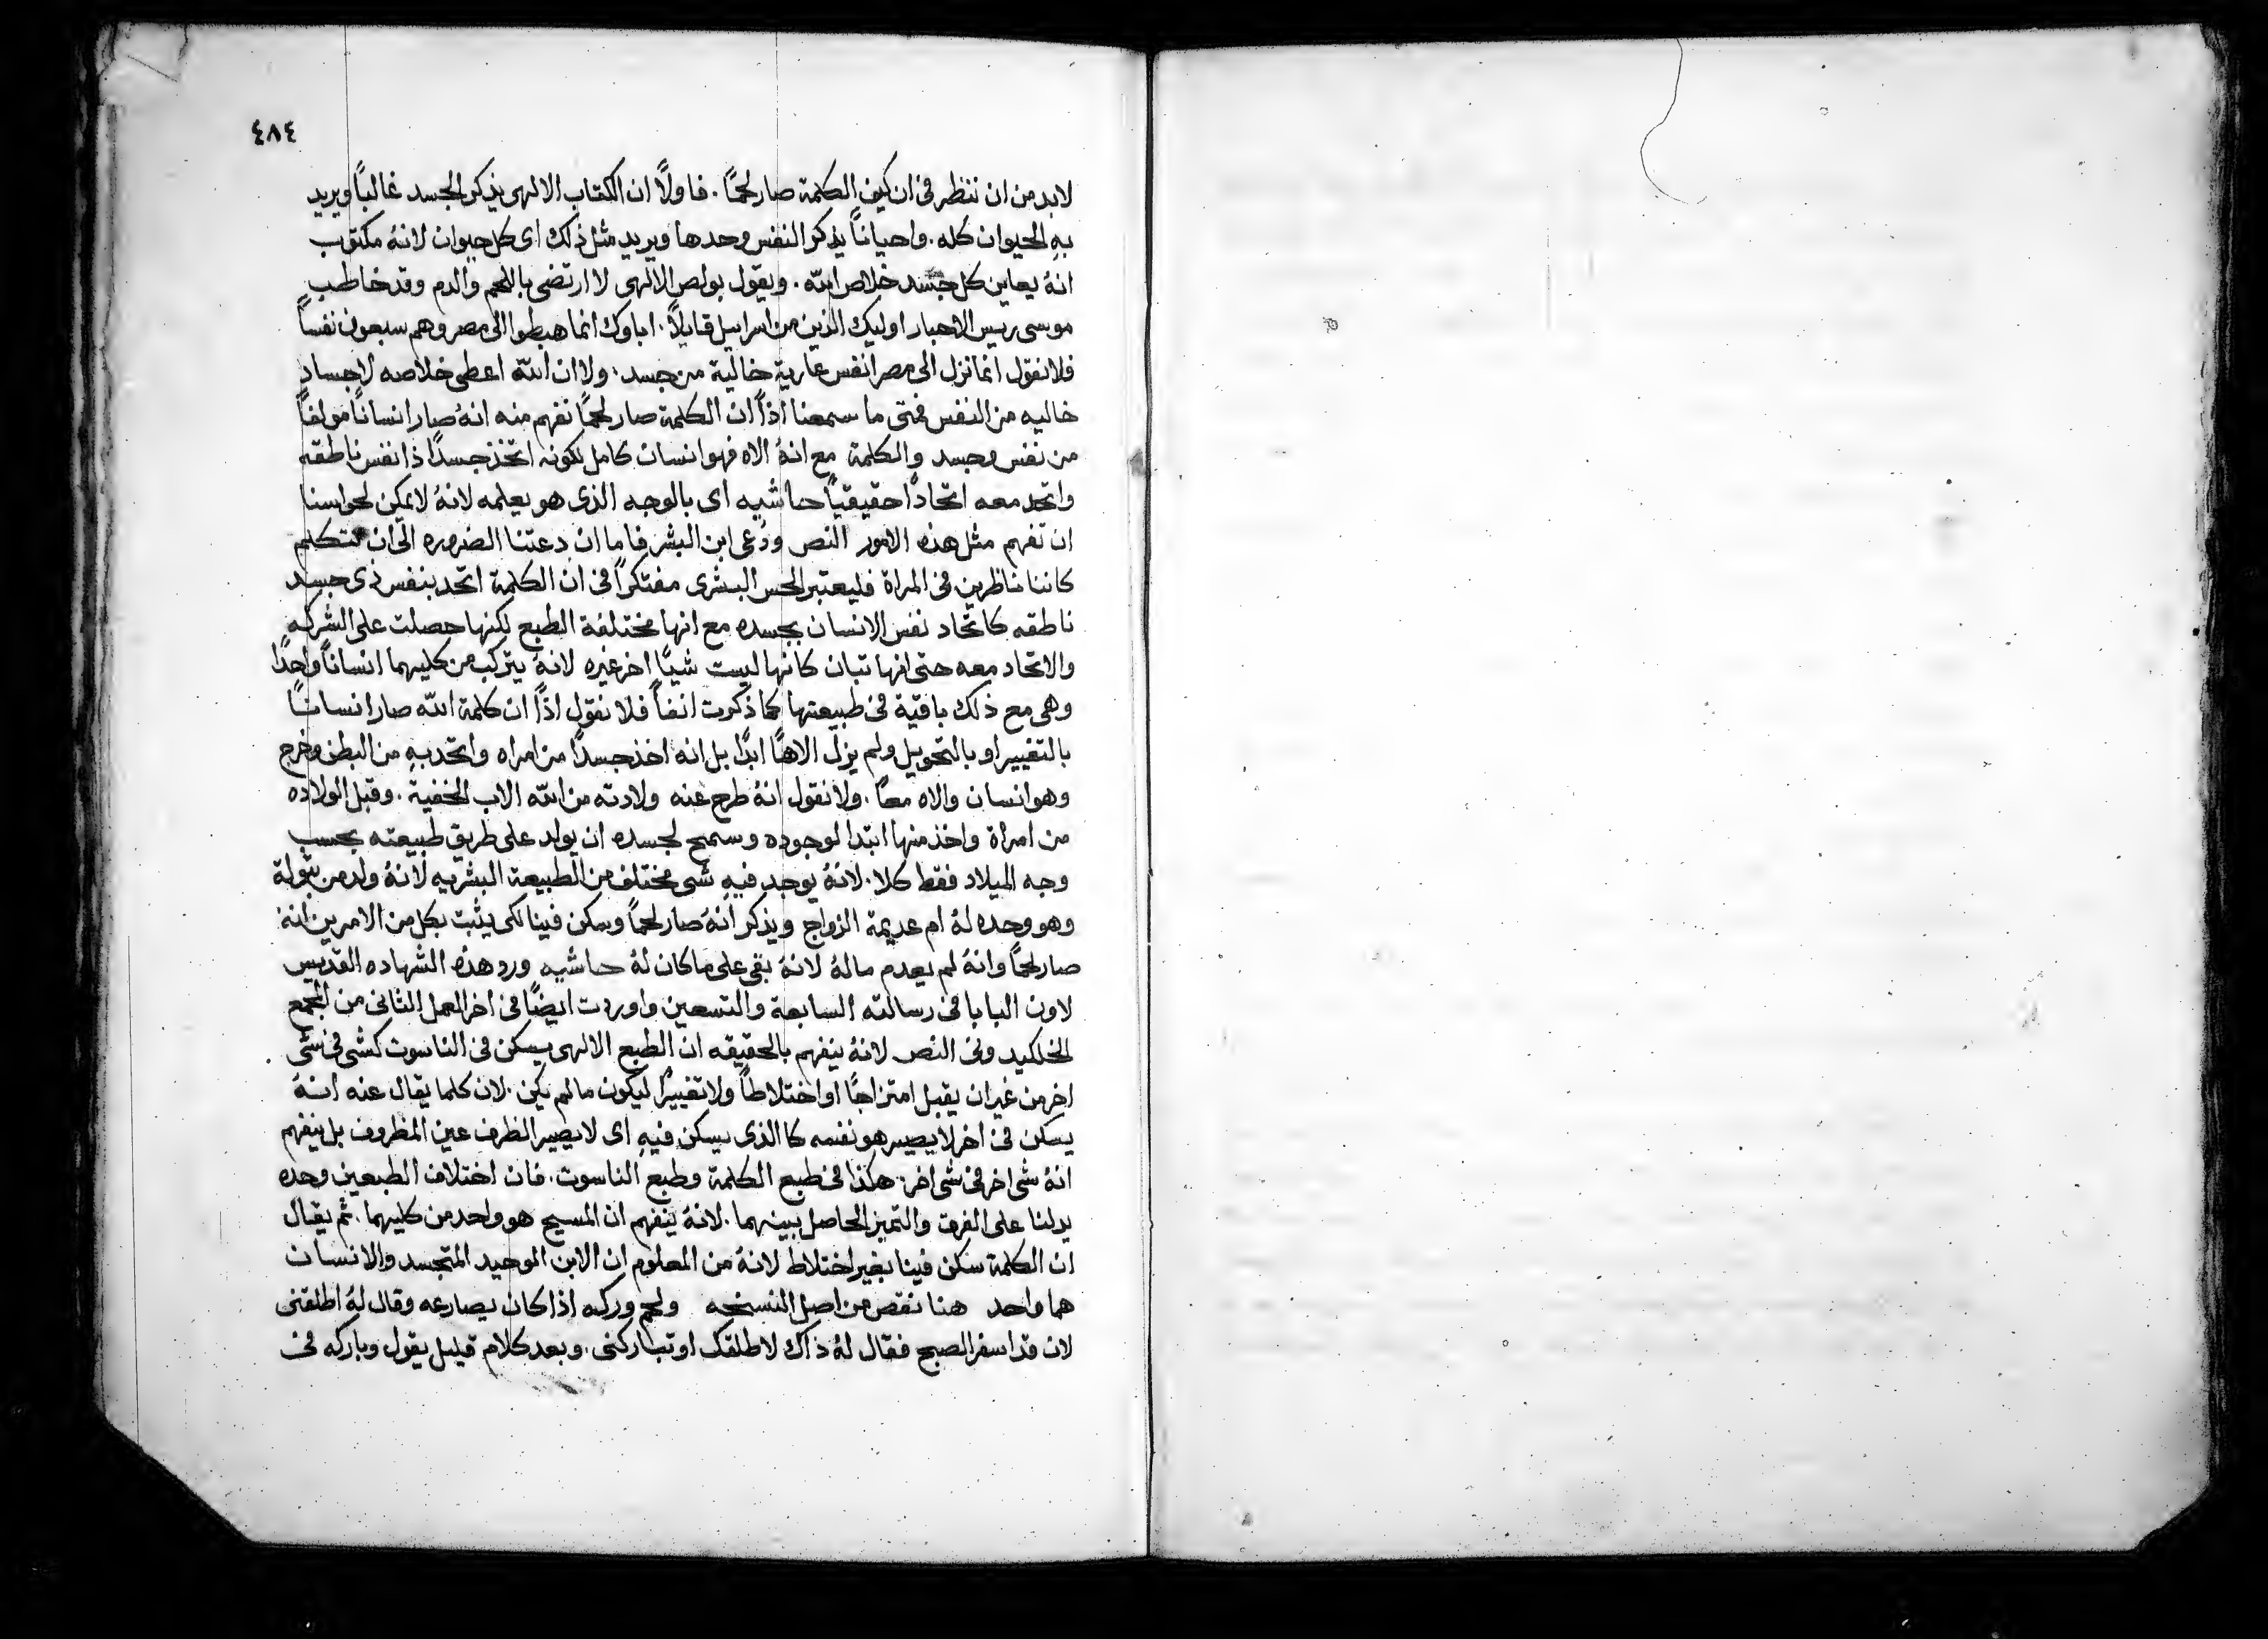 ٤٨٤
لابد من ان ننظر فى ان كيف الكلمة صار لحمًا . فاولاً ان الكتاب الالهى يذكر الجسد غالباً ويريد
بهِ الحيوان كله . واحياناً يذكر النفس وحدها ويريد مثل ذلك اى كل حيوان لانهُ مكتوب
انهُ يعاين كل جسد خلاص الله . ويقول بولص الالهى لا ارتضى باللحم والدم وقد خاطب
موسى ريس الاحبار اوليك الذين من اسراييل قايلاً . اباوك انما هبطوا الى مصر وهم سبعون نفساً
فلا نقول انما نزل الى مصر انفس عارية خالية من جسد . ولا ان الله اعطى خلاصه لاجساد
خاليه من النفس فمتى ما سمعنا اذاً ان الكلمة صار لحمًا نفهم منه انهُ صار انسانًا مولفاً
من نفس وجسد والكلمة مع انهُ الاه فهو انسان كامل لكونه اتخذ جسدًا ذا نفس ناطقه
واتحد معه اتحادًا حقيقيًا حاشيه اى بالوجه الذى هو يعلمه لانهُ لا يمكن لحواسنا
ان تفهم مثل هذه الامور النص ودُعى ابن البشر فاما ان دعتنا الضروره الى ان نتكلم
كاننا ناظرين فى المراة فليعتبر الحس البشرى مفتكرًا فى ان الكلمة اتحد بنفس ذى جسد
ناطقه كاتحاد نفس الانسان بجسده مع انها مختلفة الطبع لكنها حصلت على الشركه
والاتحاد معه حتى انها تبان كانها ليست شيًا اخر غيره لانهُ يتركب من كليهما انساناً واحدًا
وهى مع ذلك باقية فى طبيعتها كما ذكرت انفاً فلا نقول اذًا ان كلمة الله صار انسانًا
بالتغيير او بالتحويل ولم يزل الاهًا ابدًا بل انه اخذ جسدًا من امراه واتحد بهِ من البطن وخرج
وهو انسان والاه معًا . ولا نقول انهُ طرح عنه ولادته من الله الاب الخفية . وقبل الولاده
من امراة واخذ منها ابتدا لوجوده وسمح لجسده ان يولد على طريق طبيعته بحسب
وجه الميلاد فقط كلا . لانهُ يوجد فيهِ شى مختلف من الطبيعة البشريه لانهُ ولد من بتولة
وهو وحده لهُ ام عديمة الزواج ويذكر انهُ صار لحمًا وسكن فينا لكى يثبت بكل من الامرين انهُ
صار لحمًا وانهُ لم يعدم مالهُ لانهُ بقى على ماكان لهُ حاشيه ورد هذه الشهاده القديس
لاون البابا فى رسالته السابعة والتسعين واوردت ايضًا فى اخر العمل الثانى من المجمع
الخلكيد ونى النص لانهُ ينفهم بالحقيقه ان الطبع الالهى يسكن فى الناسوت كشى فى شى
اخر من غير ان يقبل امتزاجًا او اختلاطاً ولا تغييرًا ليكون مالم يكن . لان كلما يقال عنه انهُ
يسكن فى اخر لا يصير هو نفسه كالذى يسكن فيهِ اى لا يصير الظرف عين المظروف بل ينفهم
انهُ شى اخر فى شى اخر . هكذا فى طبع الكلمة وطبع الناسوت . فان اختلاف الطبعين وحده
يدلنا على الفرق والتميز الحاصل بينهما . لانهُ ينفهم ان المسيح هو واحد من كليهما . ثم يقال
ان الكلمة سكن فينا بغير اختلاط لانهُ من المعلوم ان الابن الوحيد المتجسد والانسان
هما واحد هنا نقص من اصل النسخه ولحم وركه اذا كان يصارعه وقال لهُ اطلقنى
لان قد اسفر الصبح فقال لهُ ذاك لا طلقك او تباركنى . وبعد كلام قليل يقول وباركه فى